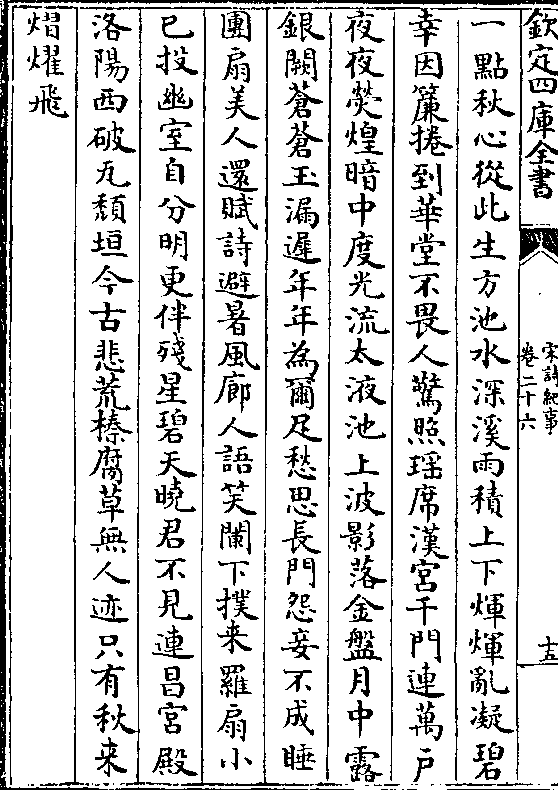 欽定四庫全書
宋詩紀事
卷二十六
十五
一點秋心從此生方池水深溪雨積上下煇煇亂凝碧
幸因簾捲到華堂不畏人驚照瑤席漢宮千門連萬戸
夜夜熒煌暗中度光流太液池上波影落金盤月中露
銀闕蒼蒼玉漏遲年年為爾足愁思長門怨妾不成睡
團扇美人還賦詩避暑風廊人語笑闌下撲来羅扇小
已投幽室自分明更伴殘星碧天曉君不見連昌宮殿
洛陽西破瓦頹垣今古悲荒榛腐草無人迹只有秋来
熠燿飛